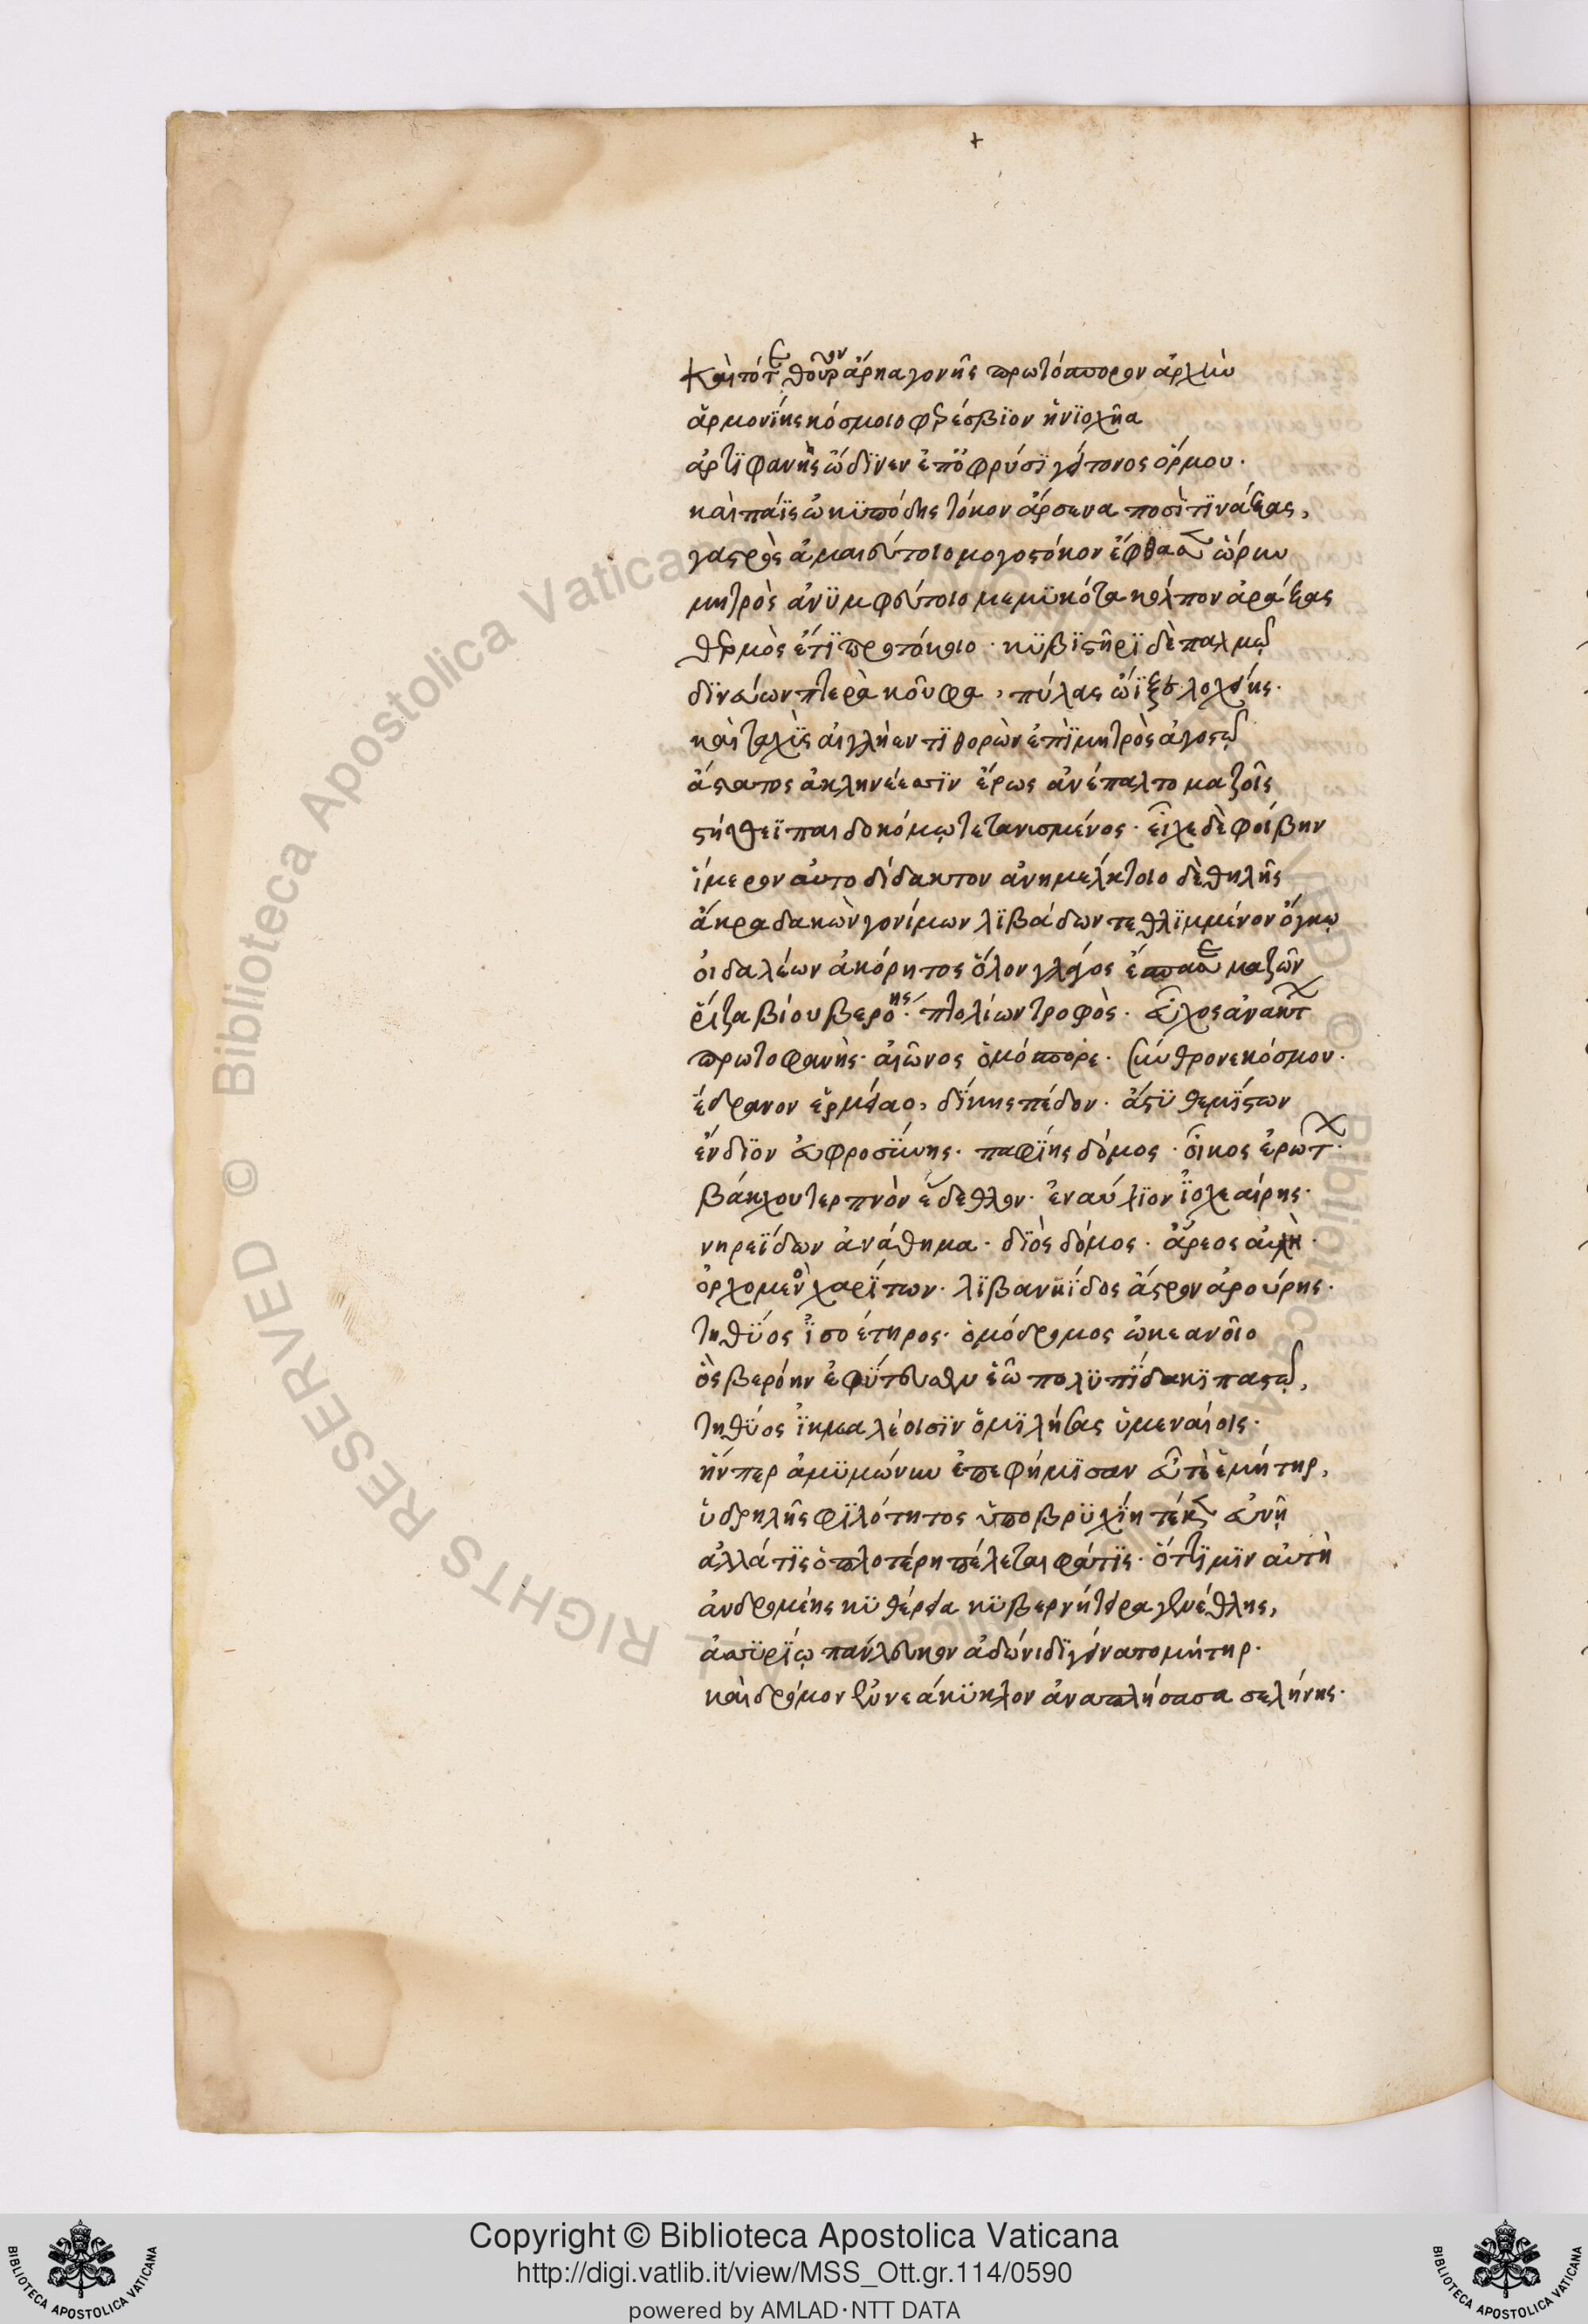 +
καὶ τότε θοῦρον ἄρηα γονῆς πρωτόσπορον ἀρχὴν
ἁρμονίης κόσμοιο φερέσβϊον ἡνϊοχῆα
ἀρτϊφανὴς ὤδϊνεν ἐπ' ὀφρύσϊ γείτονος ὅρμου·
καὶ παῖς ὠκϋπόδης τόκον ἄρσενα ποσὶ τϊνάξας,
γαστρὸς ἀμαιεύτοιο μογοστόκον ἔφθασεν ὥρην
μητρὸς ἀνϋμφεύτοιο μεμϋκότα κόλπον ἀράξας
θερμὸς ἔτϊ πρὸ τόκοιο· κϋβϊστητῆρϊ δὲ παλμῷ
δϊνεύων πτερὰ κοῦφα, πύλας ὤϊξε λοχείης·
καὶ ταχὺς αἰγλήεντϊ θορὼν ἐπὶ μητρὸς ἀγοστῷ
ἄστατος ἀκλινέεσσϊν ἔρως ἀνέπαλτο μαζοῖς
στήθεϊ παιδοκόμῳ τετανυσμένος· εἶχε δὲ φοίβην
ἵμερον αὐτοδίδακτον ἀνημέλκτοιο δὲ θηλῆς
ἄκρα δακὼν γονίμων λϊβάδων τεθλϊμμένον ὄγκῳ
οἰδαλέων ἀκόρητος ὅλον γλάγος ἔσπασε μαζῶν
ῥίζα βίου βερόης· πτολίων τροφὸς· εὖχος ἀνάκτων
πρωτοφανὴς· αἰῶνος ὁμόσπορε· σύνθρονε κόσμου·
ἕδρανον ἑρμείαο, δίκης πέδον· ἄστϋ θεμίστων
ἔνδϊον εὐφροσύνης· παφίης δόμος· οἶκος ἐρώτων·
βάκχου τερπνὸν ἔδεθλον· ἐναύλϊον ἰοχεαίρης·
νηρεΐδων ἀνάθημα· δϊὸς δόμος· ἄρεος αὐλὴ·
ὀρχομενὸς χαρίτων· λϊβανηΐδος ἄστρον ἀρούρης·
τηθύος ἰσοέτηρος· ὁμόδρομος ὠκεανοῖο
ὃς βερόην ἐφύτευσεν ἑῷ πολϋπίδακϊ παστῷ,
τηθύος ἰκμαλέοισϊν ὁμϊλήσας ὑμεναίοις·
ἥνπερ ἀμϋμώνην ἐπεφήμϊσαν εὖτέ ἑ μήτηρ,
ὑδρηλῆς φϊλότητος ὑποβρϋχίη τέκεν εὐνῇ
ἀλλά τϊς ὁπλοτέρη πέλεται φάτϊς· ὅττϊ μϊν αὐτὴ
ἀνδρομέης κϋθέρεια κϋβερνήτειρα γενέθλης,
ἀσσϋρίῳ πάνλευκον ἀδώνιδϊ γείνατο μήτηρ·
καὶ δρόμον ἐννεάκϋκλον ἀναπλήσασα σελήνης·
Copyright © Biblioteca Apostolica Vaticana
http://digi.vatlib.it/view/MSS_Ott.gr.114/0590
powered by AMLAD·NTT DATA
BIBLIOTECA APOSTOLICA VATICANA
BIBLIOTECA APOSTOLICA VATICANA
Biblioteca Apostolica Vaticana
ALL RIGHTS RESERVED ©